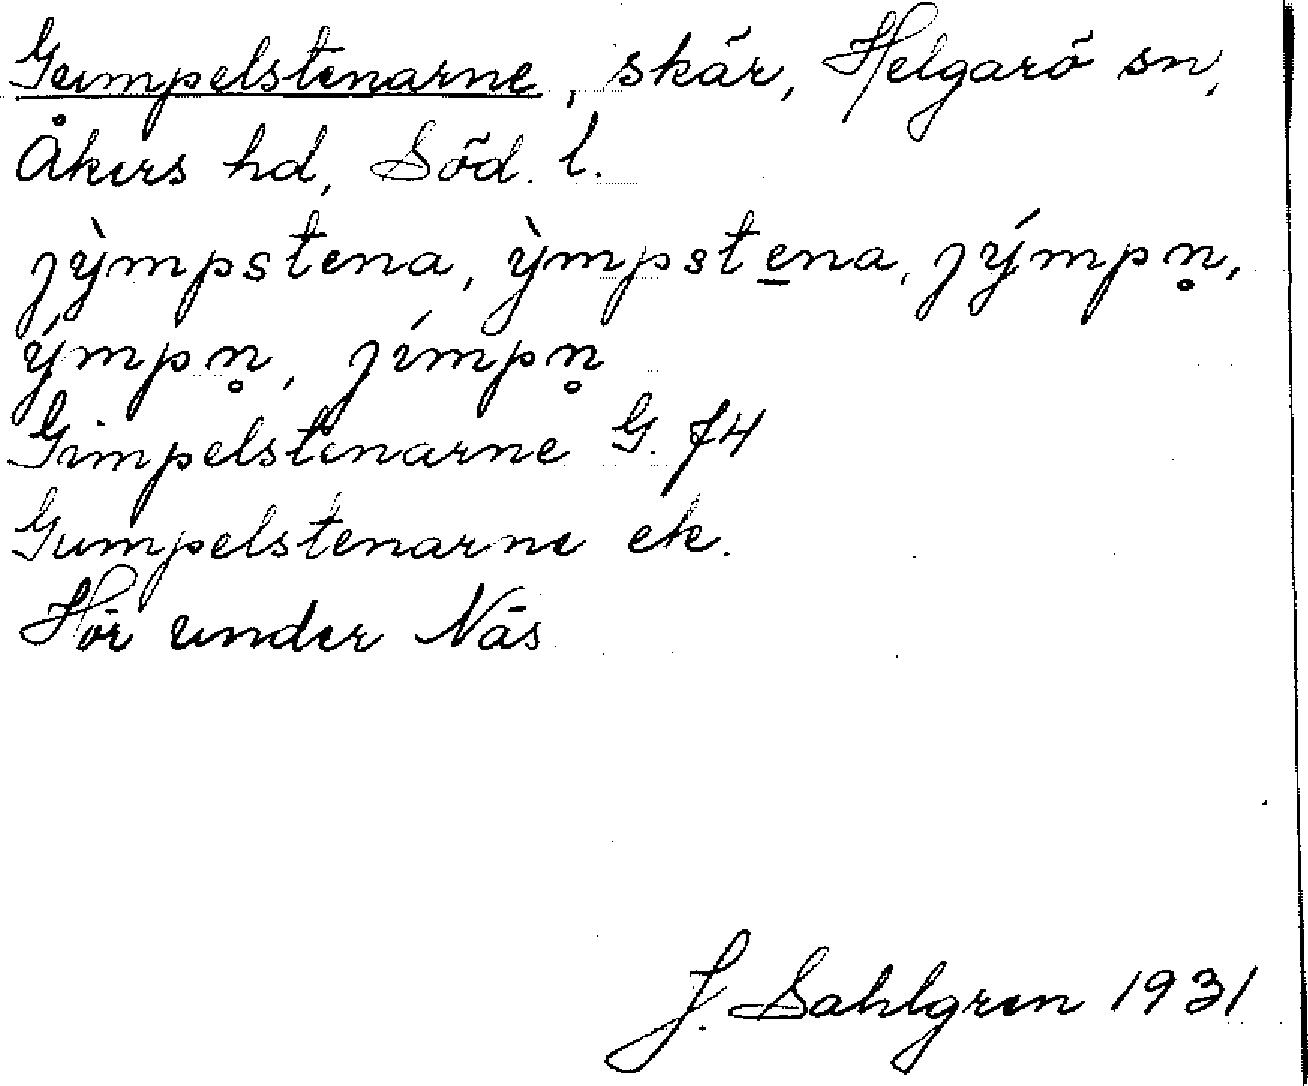 Gumpelstenarne, skär, Helgarö sn,
Åkers hd, Söd. l.
jỳmpstena, ỳmpste̲na, jýmpn̥,
ýmpn̥, jímpn̥
Gimpelstenarne G. 74
Gumpelstenarne ek.
Hör under Näs
J. Sahlgren 1931